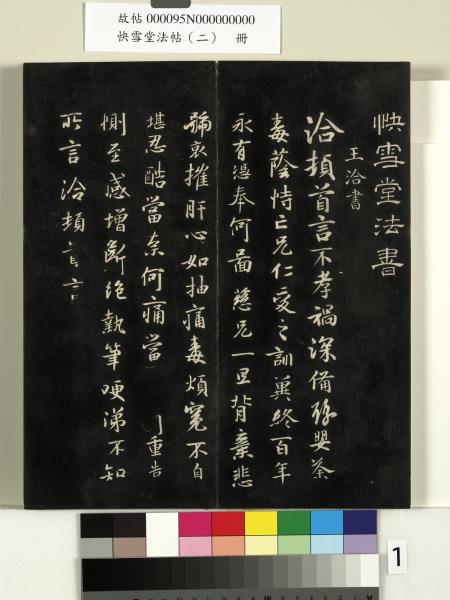 故帖 000095N000000000
快雪堂法帖（二） 冊
快雪堂法書
王洽書
洽頓首言不孝禍深備豫嬰荼
毒蔭恃亡兄仁愛之訓冀終百年
永有憑奉何圖慈兄一旦背棄悲
號哀摧肝心如抽痛毒煩冤不自
堪忍酷當奈何痛當重告
惻至感增斷絕執筆哽涕不知
所言洽頓首言
1